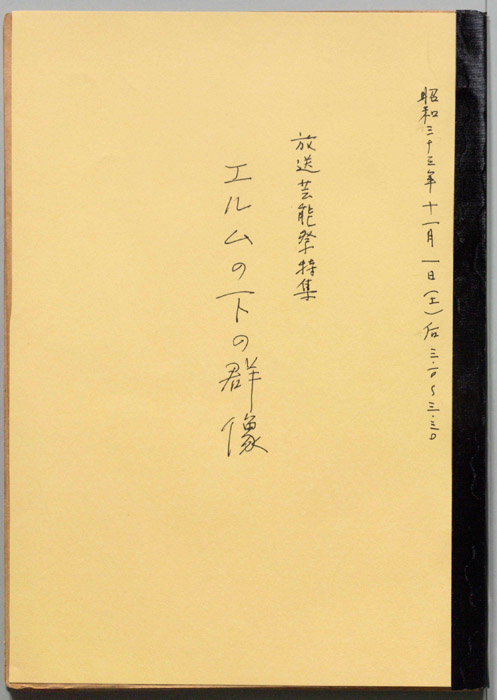 昭和三十三年十一月一日(土)后三.〇〜三.三〇
放送芸能祭特集
エルムの下の群像